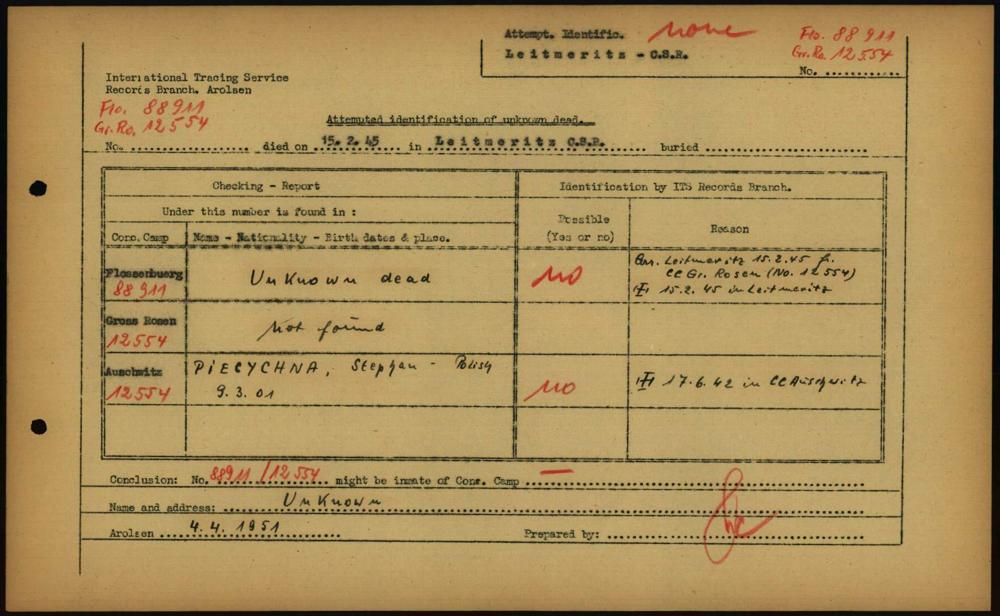 Attempt. Identific. none
Leitmeritz - C.S.R.
Flo. 88911
Gr.Ro. 12554
No. ............
International Tracing Service
Records Branch. Arolsen
Flo. 88911
Gr.Ro. 12554
Attempted identification of unknown dead.
No. .................... died on 15. 2. 45 in Leitmeritz C.S.R. buried .......................
Checking - Report
Identification by ITS Records Branch.
Under this number is found in :
Possible (Yes or no)
Reason
Conc. Camp
Name - Nationality - Birth dates & place.
Flossenbuerg 88911
Unknown dead
no
Arr. Leitmeritz 15.2.45 fr.
CC Gr. Rosen (No. 12554)
15.2.45 in Leitmeritz
Gross Rosen 12554
Not found
Auschwitz 12554
PIECYCHNA, Stephan - Polish
9.3.01
no
17.6.42 in CC Auschwitz
Conclusion: No. 88911/12554 might be inmate of Conc. Camp —
Name and address: Unknown
Arolsen 4.4.1951 Prepared by: